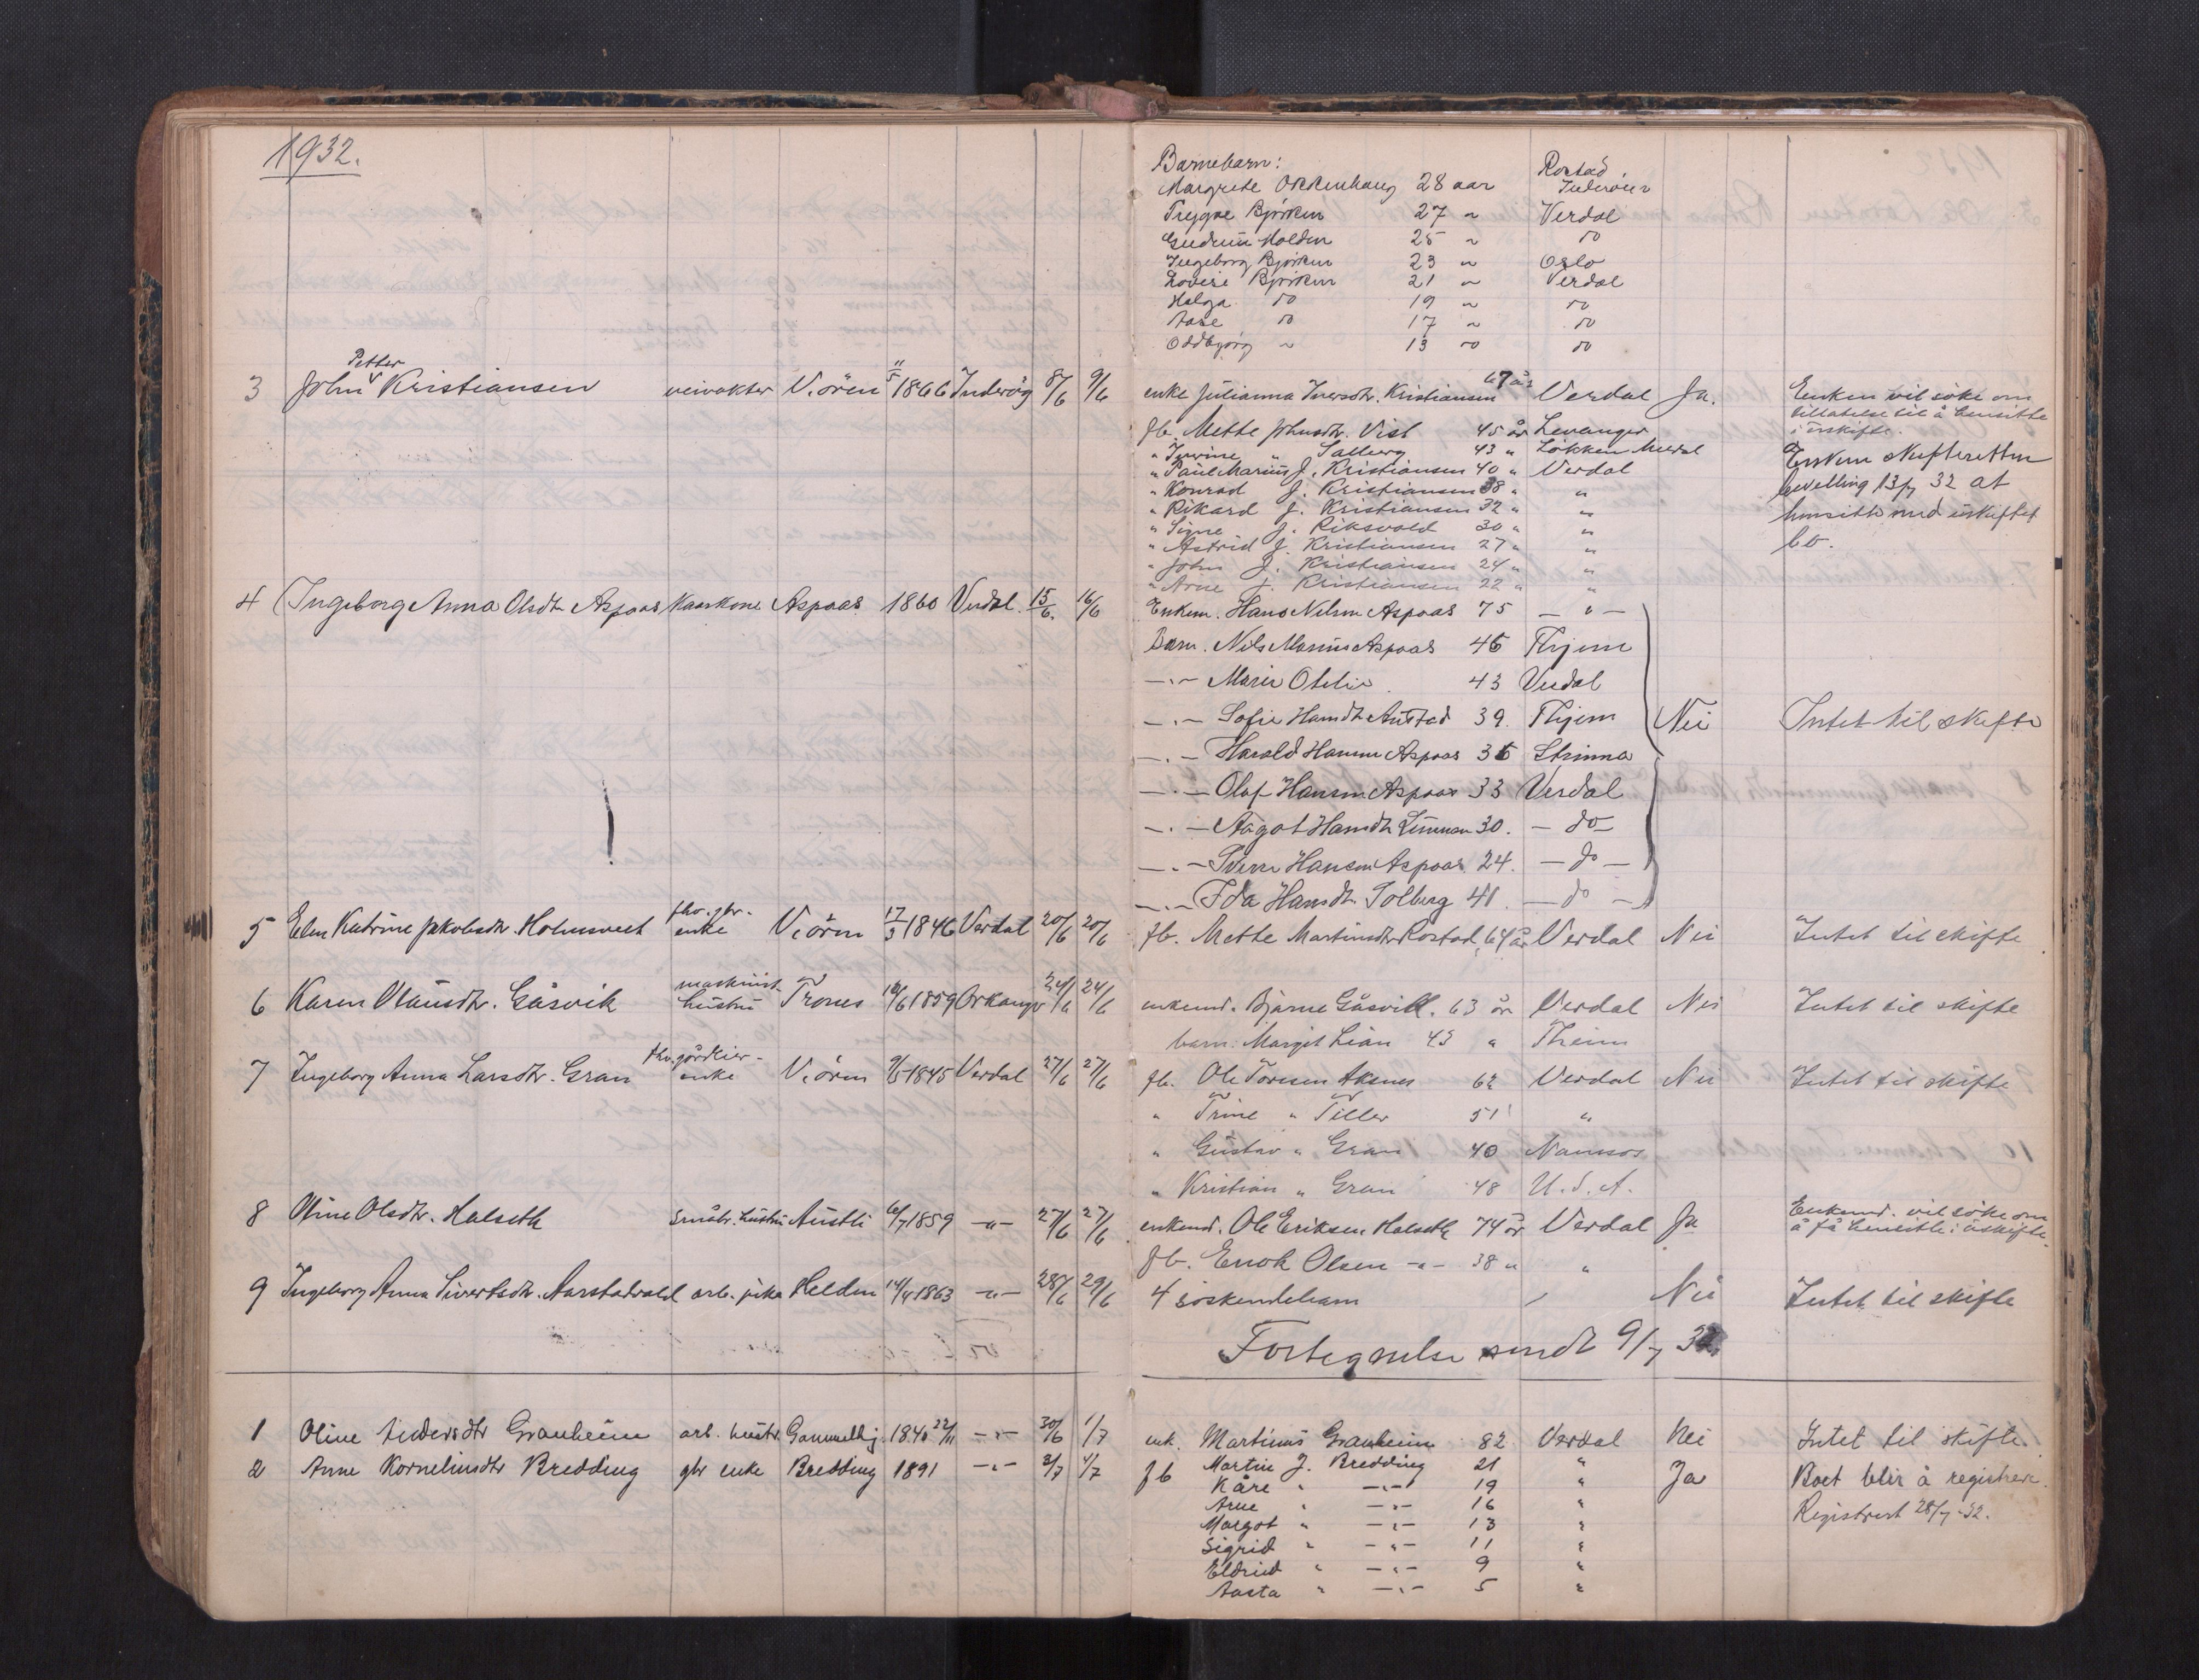 1932.
Barnebarn:
Margrete Okkenhaug 28 aar Rostad Inderöen
Trygve Björken 27 " Verdal
Gudrun Holden 25 " do
Ingeborg Björken 23 " Oslo
Lovise Björken 21 " Verdal
Helga do 19 " do
Aase do 17 " do
Oddbjörg " 13 " do
3 John Petter Kristiansen veivokter V.ören 11/5 1866 Inderöy 8/6 9/6 enke Julianna Iversdtr. Kristiansen 67 år Verdal Ja. Enken vil söke om
tillatelse til å hensitte
i uskifte.
fb. Mette Johnsdtr. Vist 45 år Levanger
" " Salberg 43 " Lökken
" Paul Marius J. Kristiansen 40 " Verdal
" Konrad J. Kristiansen 38 " "
" Rikard J. Kristiansen 32 " "
" Signe J. Riksvold 30 " "
" Astrid J. Kristiansen 27 " "
" John J. Kristiansen 24 " "
" Arne J. Kristiansen 22 " "
Enken skifterettens
bevilling 13/7 32 at
hensitte med uskiftet
bo.
4 Ingeborg Anna Olsdtr Aspaas Kaarkone Aspaas 1860 Verdal. 15/6. 16/6 Enkem. Hans Nilsen Aspaas 75 — " —
Barn. Nils Marius Aspaas 45 Thjem
—"— Marie Otelie 43 Verdal
—"— Sofie Hansdtr Austad 39. Thjem Nei Intet til skifte
—"— Harald Hansen Aspaas 35 Strinna
—"— Olaf Hansen Aspaas 33 Verdal
—"— Aagot Hansdtr 30. — do —
—"— Sverre Hansen Aspaas 24. — do —
—"— Ida Hansdtr. Solberg 41. — do —
5 Elen Katrine Jakobsdtr. Holmsveet fhv. gbr. enke V.ören 17/3 1846 Verdal 20/6 20/6 fb. Mette Martinsdtr Rostad, 64 år Verdal Nei Intet til skifte
6 Karen Olausdtr. Gåsvik maskinist hustru Trones 1859 Orkanger 24/6 24/6 enkemd. Bjarne Gåsvik. 63 år Verdal Nei Intet til skifte
barn: Margit Lian 43 " Theim
7 Ingeborg Anna Larsdtr. Gran fhv. gårdeier-enke V.ören 9/5 1845 Verdal 27/6 27/6 fb. Ole Toresen Aksnes 62 Verdal Nei Intet til skifte
" Trine " Tiller 51 "
" Gustav " Gran 40 Namsos
" Kristian " Gran 48 U.S.A.
8 Oline Olsdtr. Halseth småbr. hustru Austli 6/7 1859 —"— 27/6 27/6 enkemd. Ole Eriksen Halseth 74 år Verdal Ja Enkemd. vil söke om
å få hensitte i uskifte.
fb. Enok Olsen —"— 38 " "
9 Ingeborg Anna Sivertsdtr. Aarstadvold arb. pike Helden 14/4 1863 —"— 28/6 29/6 4 söskendebarn Nei Intet til skifte
Fortegnelse sendt 9/7 32.
1 Oline Andersdtr Granheim arb. hustr. Gammelhj. 1840 22/11 —"— 30/6 1/7 enk. Martinus Granheim 82 Verdal Nei Intet til skifte.
2 Anne Kornelinsdtr Bredding gbr enke Bredding 1891 —"— 2/7 4/7 fb Martin J. Bredding 21 " Ja Boet blir å registrere.
Kåre " —"— 19 "
Arne " —"— 16 " Registrert 28/7-32.
Margot " —"— 13 "
Sigrid " —"— 11 "
Eldrid " —"— 9 "
Aasta " —"— 5 "